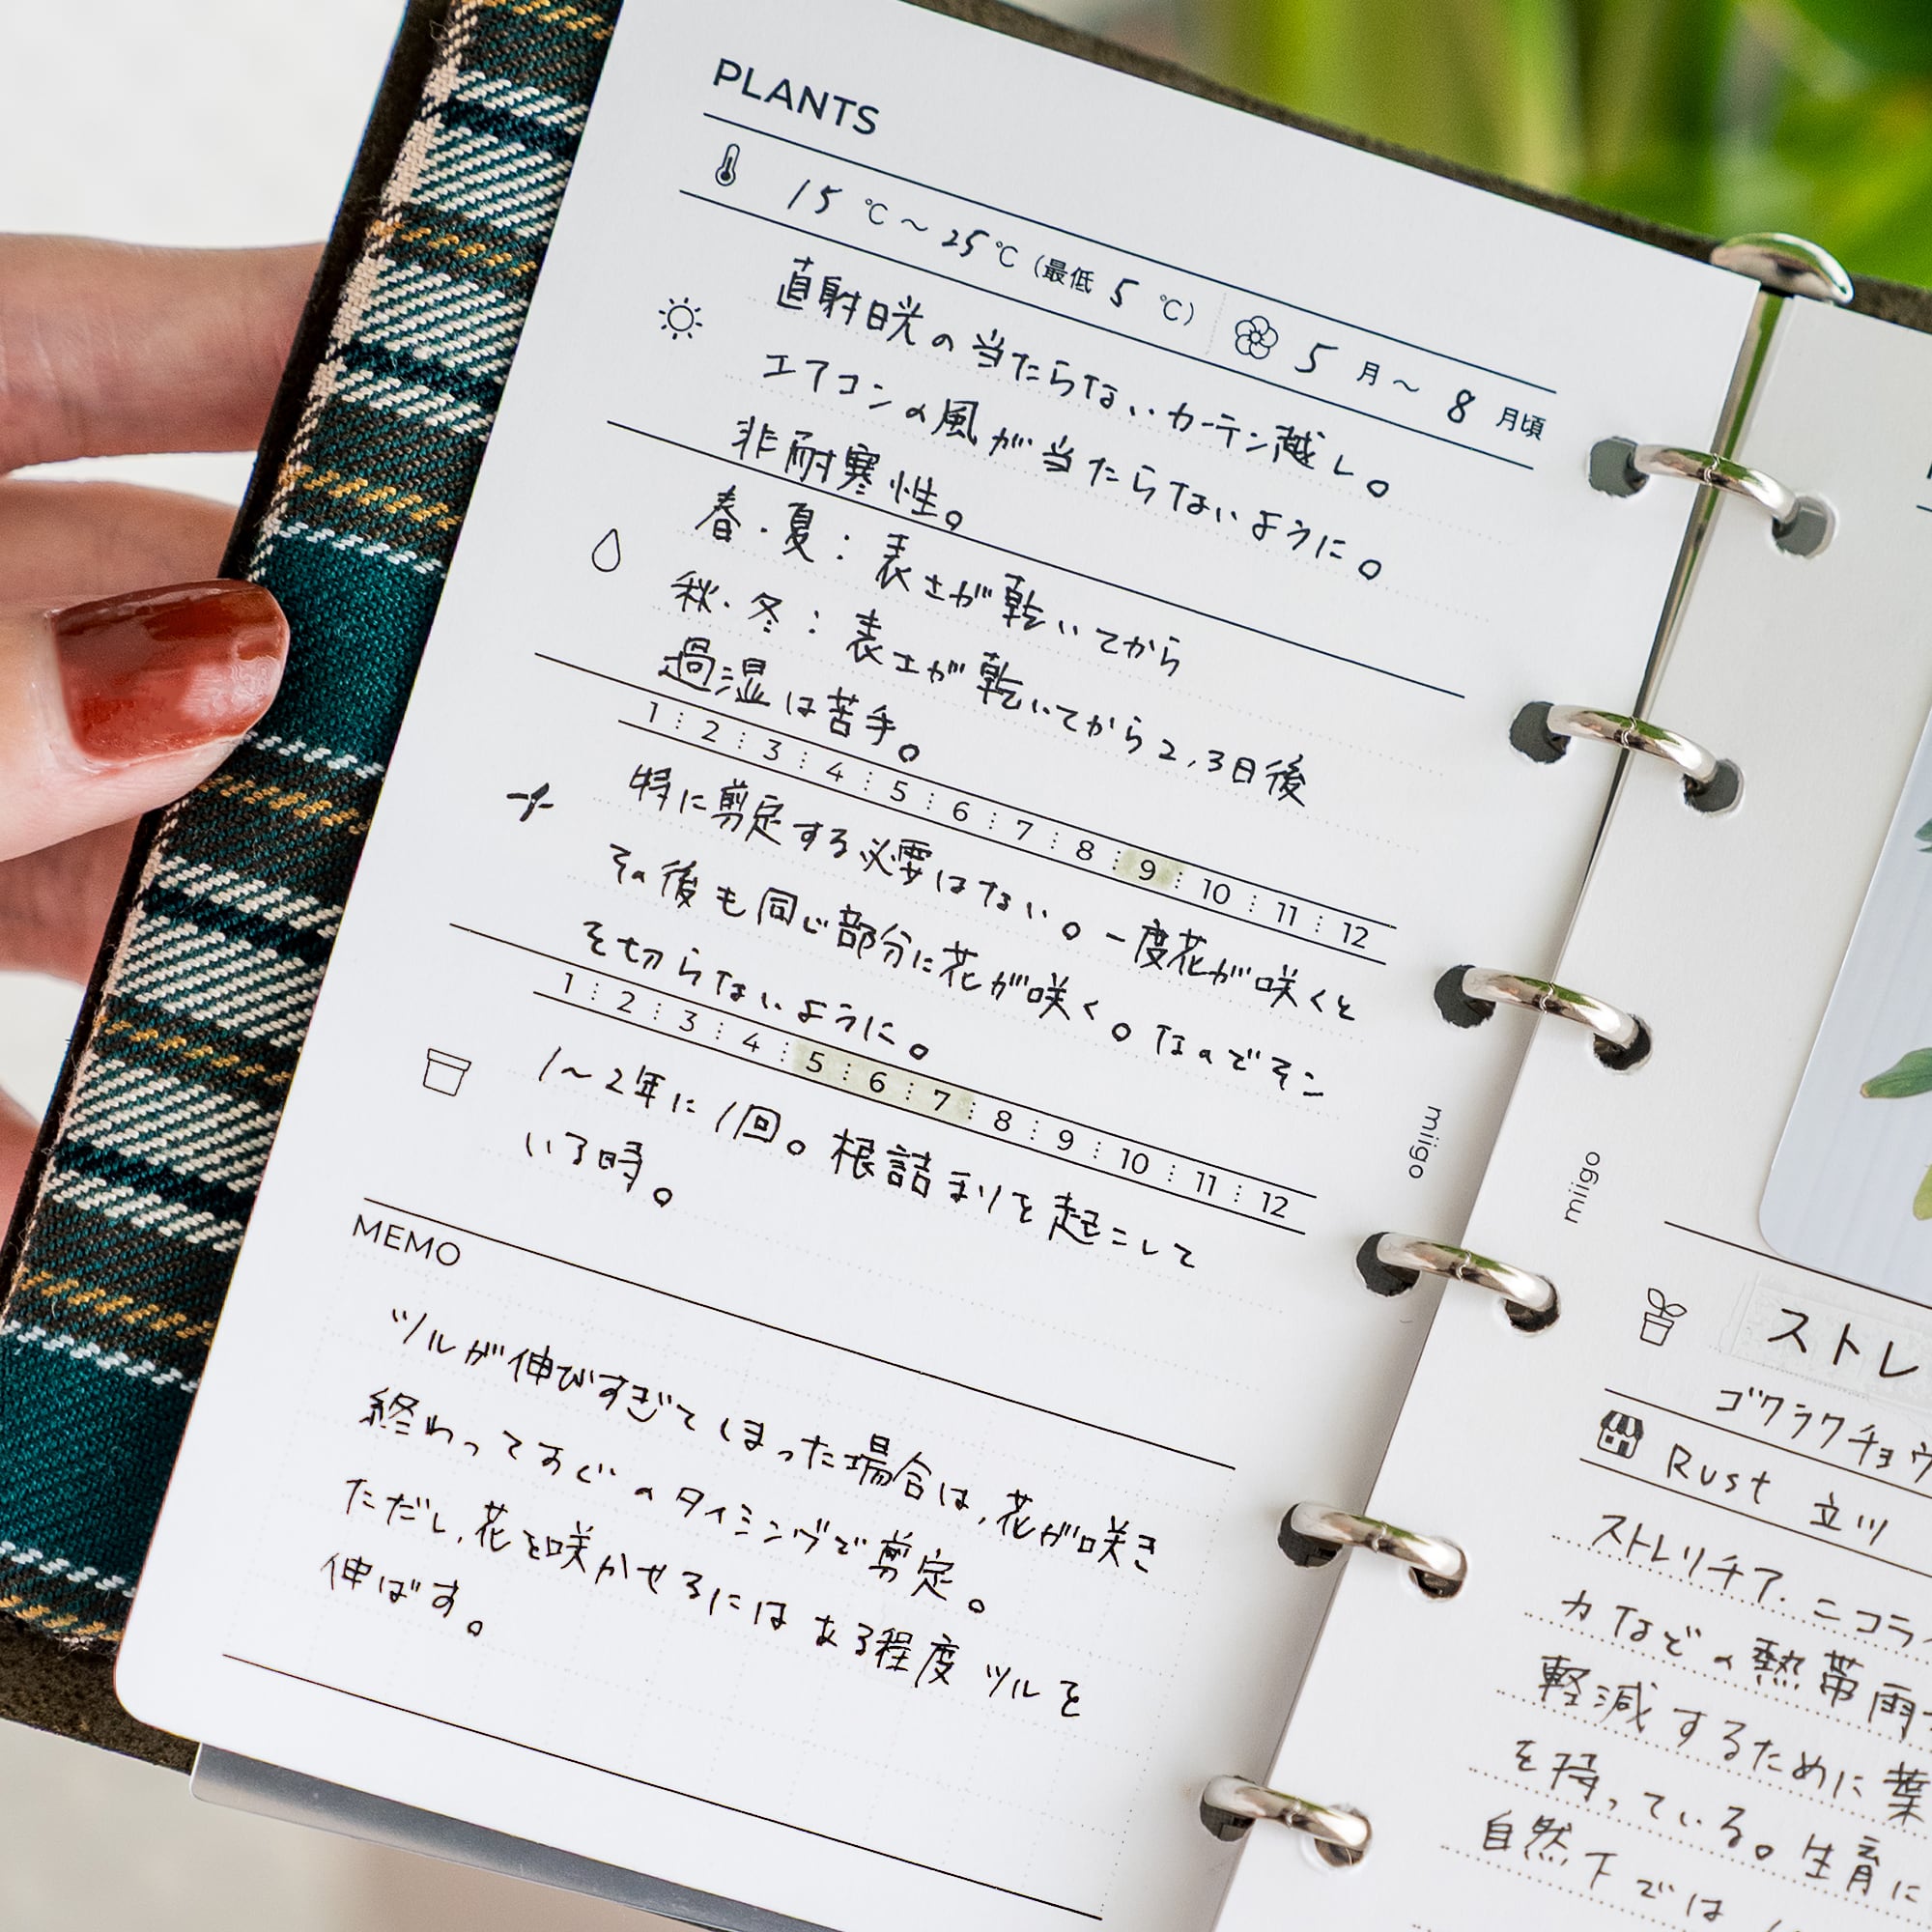 PLANTS
15 ℃ ～ 25 ℃ (最低 5 ℃) 5 月 ～ 8 月頃
直射日光の当たらないカーテン越し。
エアコンの風が当たらないように。
非耐寒性。
春・夏：表土が乾いてから
秋・冬：表土が乾いてから2,3日後
過湿は苦手。
1 2 3 4 5 6 7 8 9 10 11 12
特に剪定する必要はない。一度花が咲くと
その後も同じ部分に花が咲く。なのでそこ
を切らないように。
1 2 3 4 5 6 7 8 9 10 11 12
1～2年に1回。根詰まりを起こして
いる時。
MEMO
ツルが伸びすぎてしまった場合は,花が咲き
終わってすぐのタイミングで剪定。
ただし,花を咲かせるにはある程度ツルを
伸ばす。
miigo
miigo
ストレ
ゴクラクチョウ
Rust 立川
ストレリチア. ニコラ
カなどの熱帯雨
軽減するために葉
を持っている。生育に
自然下では